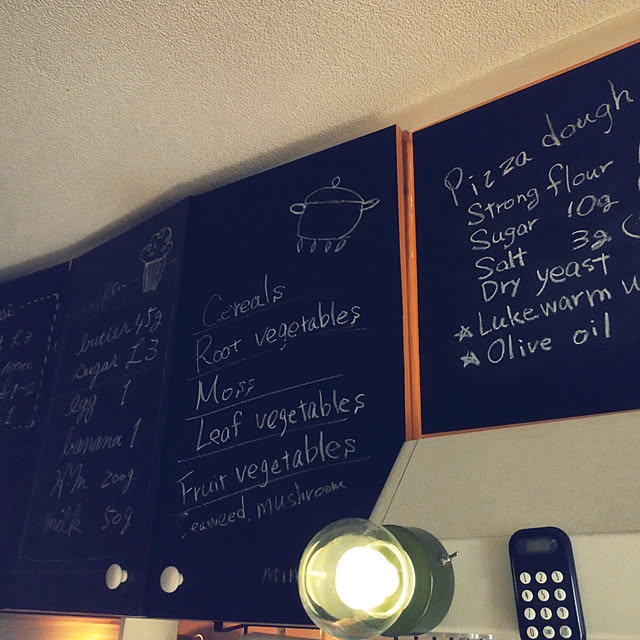 butter 45g
sugar £3
egg 1
banana 1
H.M 200g
milk 50g
Cereals
Root vegetables
Moss
Leaf vegetables
Fruit vegetables
Seaweed, mushroom
Pizza dough
Strong flour
Sugar 10g
Salt 3g
Dry yeast
☆ Lukewarm
☆ Olive oil
1 2 3